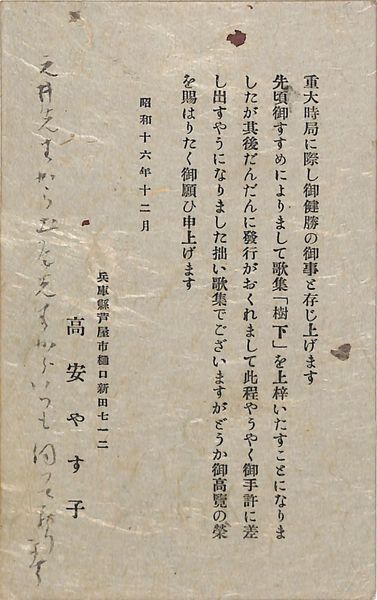 重大時局に際し御健勝の御事と存じ上げます
先頃御すすめによりまして歌集「樹下」を上梓いたすことになりま
したが其後だんだんに發行がおくれまして此程やうやく御手許に差
し出すやうになりました拙い歌集でございますがどうか御高覽の榮
を賜はりたく御願ひ申上げます
昭和十六年十二月
兵庫縣芦屋市樋口新田七一二
高安やす子
先生から